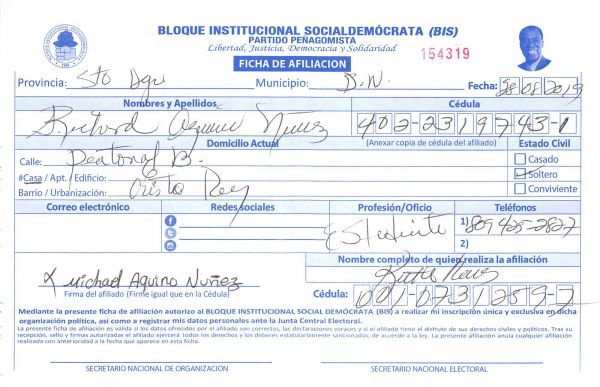 BLOQUE INSTITUCIONAL SOCIALDEMÓCRATA (BIS)
PARTIDO PEÑAGOMISTA
Libertad, Justicia, Democracia y Solidaridad
154319
FICHA DE AFILIACION
Provincia: Sto Dgo Municipio: D.N. Fecha: 28/08/2019
Nombres y Apellidos Cédula
Nunez 402-2319743-1
Domicilio Actual (Anexar copia de cédula del afiliado) Estado Civil
Calle: Peatonal B. Casado
#Casa / Apt. / Edificio: Soltero
Barrio / Urbanización: Cristo Rey Conviviente
Correo electrónico Redes sociales Profesión/Oficio Teléfonos
Estudiante 1) 809 425-2827
2)
Nombre completo de quien realiza la afiliación
Michael Aquino Nuñez
Firma del afiliado (Firme igual que en la Cédula) Cédula: 001-0731259-7
Mediante la presente ficha de afiliación autorizo al BLOQUE INSTITUCIONAL SOCIAL DEMÓCRATA (BIS) a realizar mi inscripción única y exclusiva en dicha
organización política, así como a registrar mis datos personales ante la Junta Central Electoral.
La presente ficha de afiliación es válida si los datos ofrecidos por el afiliado son correctos, las declaraciones veraces y si el afiliado tiene el disfrute de sus derechos civiles y políticos. Tras su
recepción, sello y firmas autorizadas el afiliado ejercerá todos los derechos y los deberes estatutariamente sancionados, de acuerdo a la ley. La presente afiliación anula cualquier afiliación
realizada con anterioridad a la fecha que aparece en esta ficha.
SECRETARIO NACIONAL DE ORGANIZACIÓN SECRETARIO NACIONAL ELECTORAL